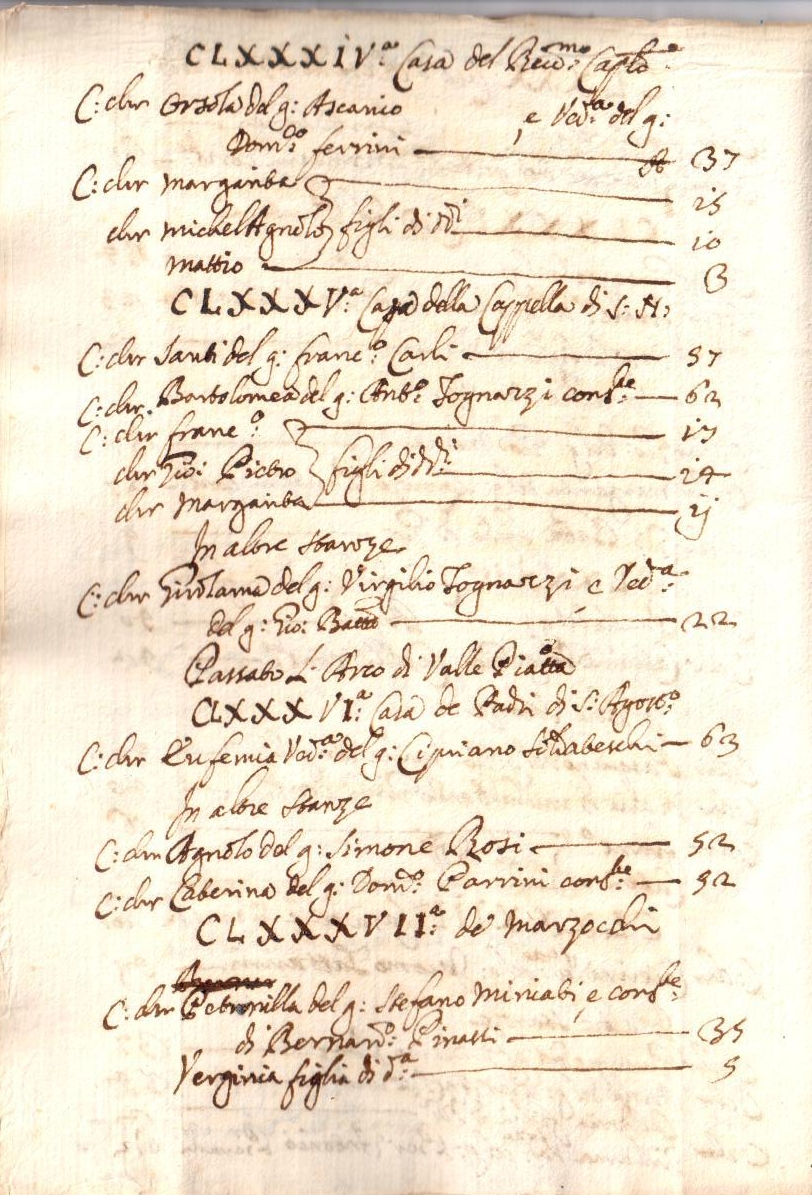 CLXXXIVª: Casa del Reu.mo Caplo:
C: chr Orsola del g: Ascanio e Ved.a del g:
Dom.co ferrini 37
C: chr Margarita 15
chr MichelAgnolo figli di d.i 10
Mattio 3
CLXXXVª: Casa della Cappella di S:
C: chr Santi del g: franc.o Carli 57
C: chr. Bartolomea del g: Ant.o Tognarzi cons.te 62
C: chr franc.o 17
chr Gio: Pietro figli di dd.i 14
chr Margarita 11
In altre stanze
C: chr Girolama del g: Virgilio Tognarzi e Ved.a
del g: Gio: Batt.o 22
Passato L'Arco di Valle Piatta
CLXXXVIª: Casa de Padri di S: Agost.o
C: chr Eufemia Ved.a del g: Cipriano 63
In altre stanze
C: chr Agnolo del g: Simone Rosi 52
C: chr Caterina del g: Dom.o Parrini cons.te 52
CLXXXVIIª: de Marzocchi
C: chr Petronilla del g: Stefano Miniati e cons.te
di Bernar.o Pinatti 35
Verginia figlia di d.a 5